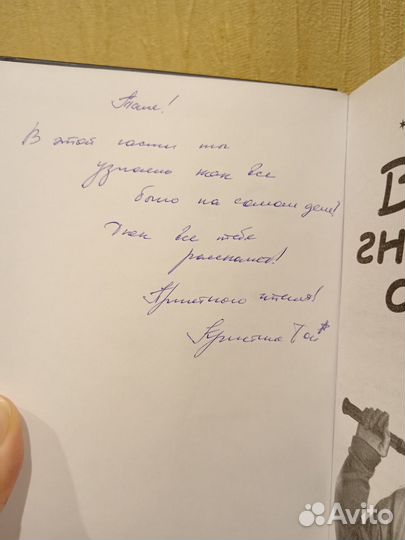 Тане!
В этой части ты
узнаешь как все
было на самом деле!
Джек все тебе
расскажет!
Приятного чтения!
Кристина Той
В
гн
о
Avito